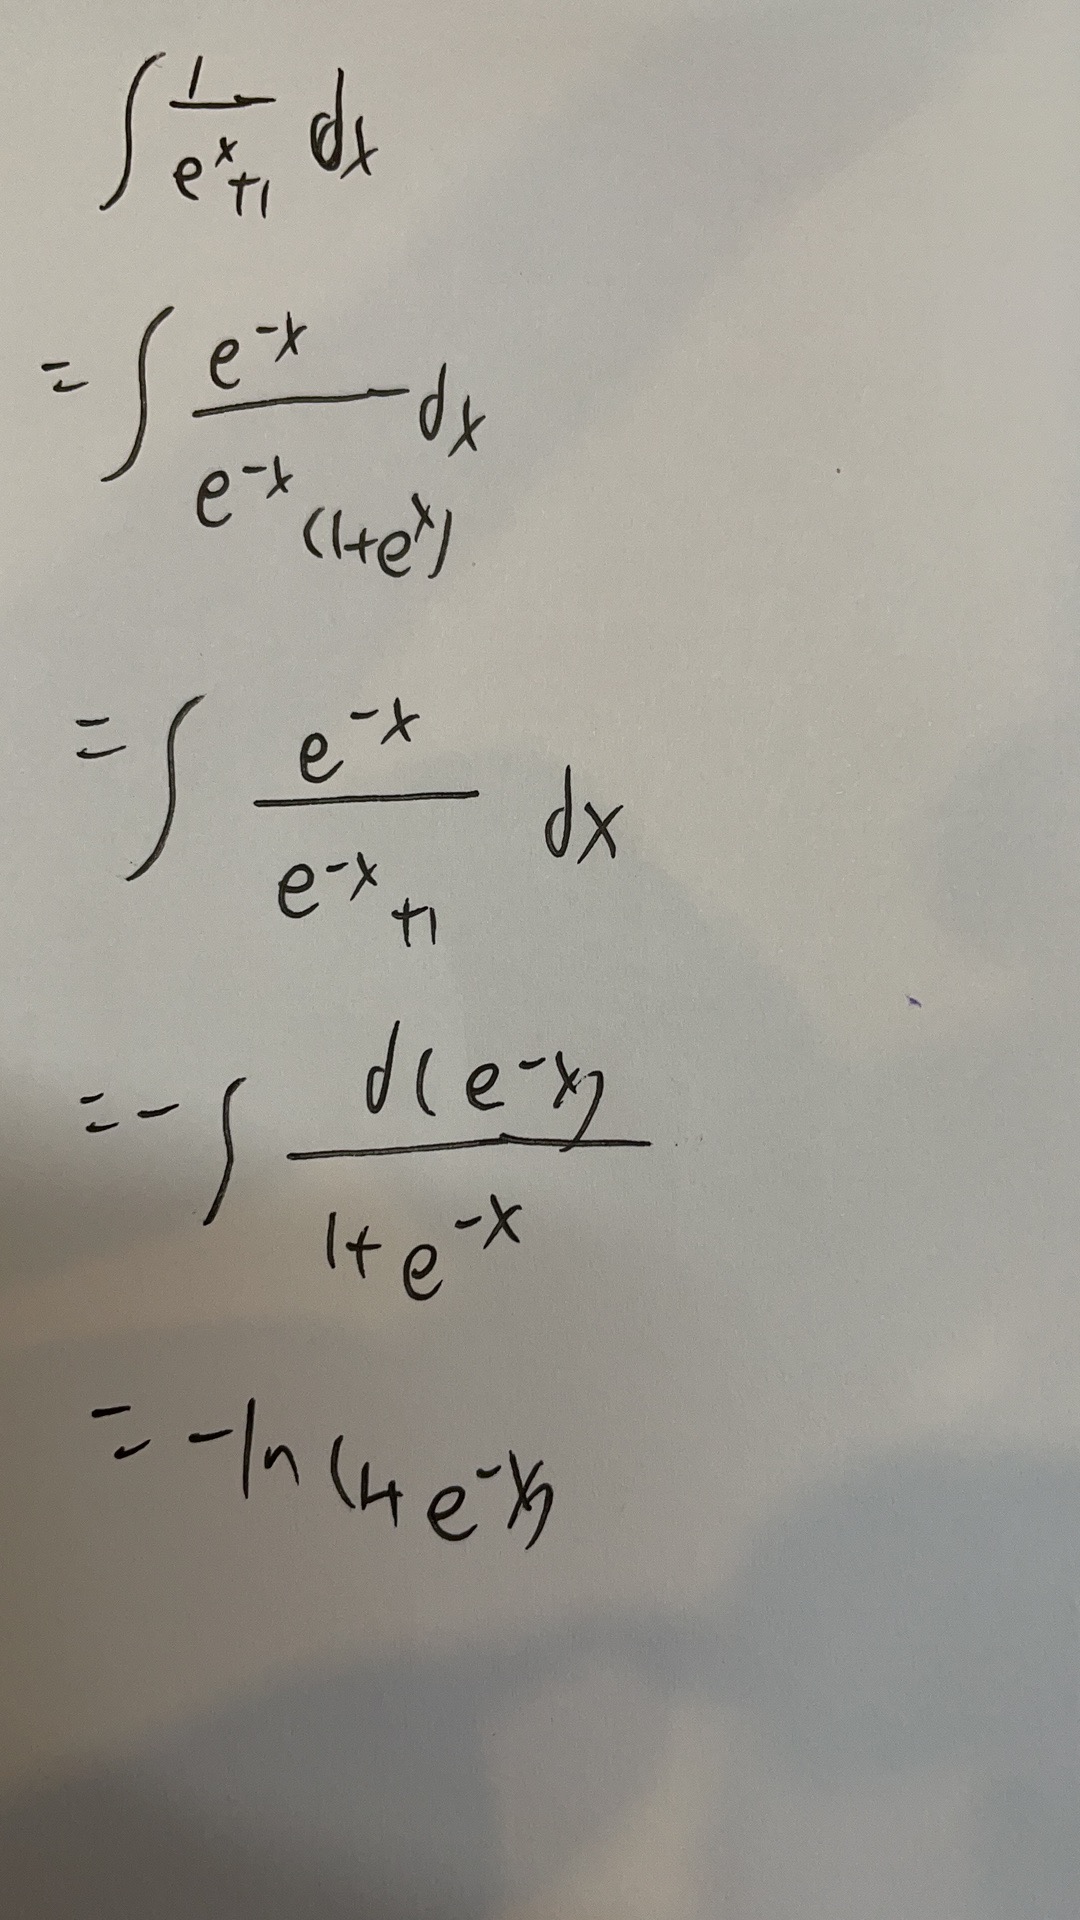 ∫ 1/(e^x+1) dx
= ∫ e^-x/(e^-x (1+e^x)) dx
= ∫ e^-x/(e^-x+1) dx
= - ∫ d(e^-x)/(1+e^-x)
= -ln(1+e^-x)